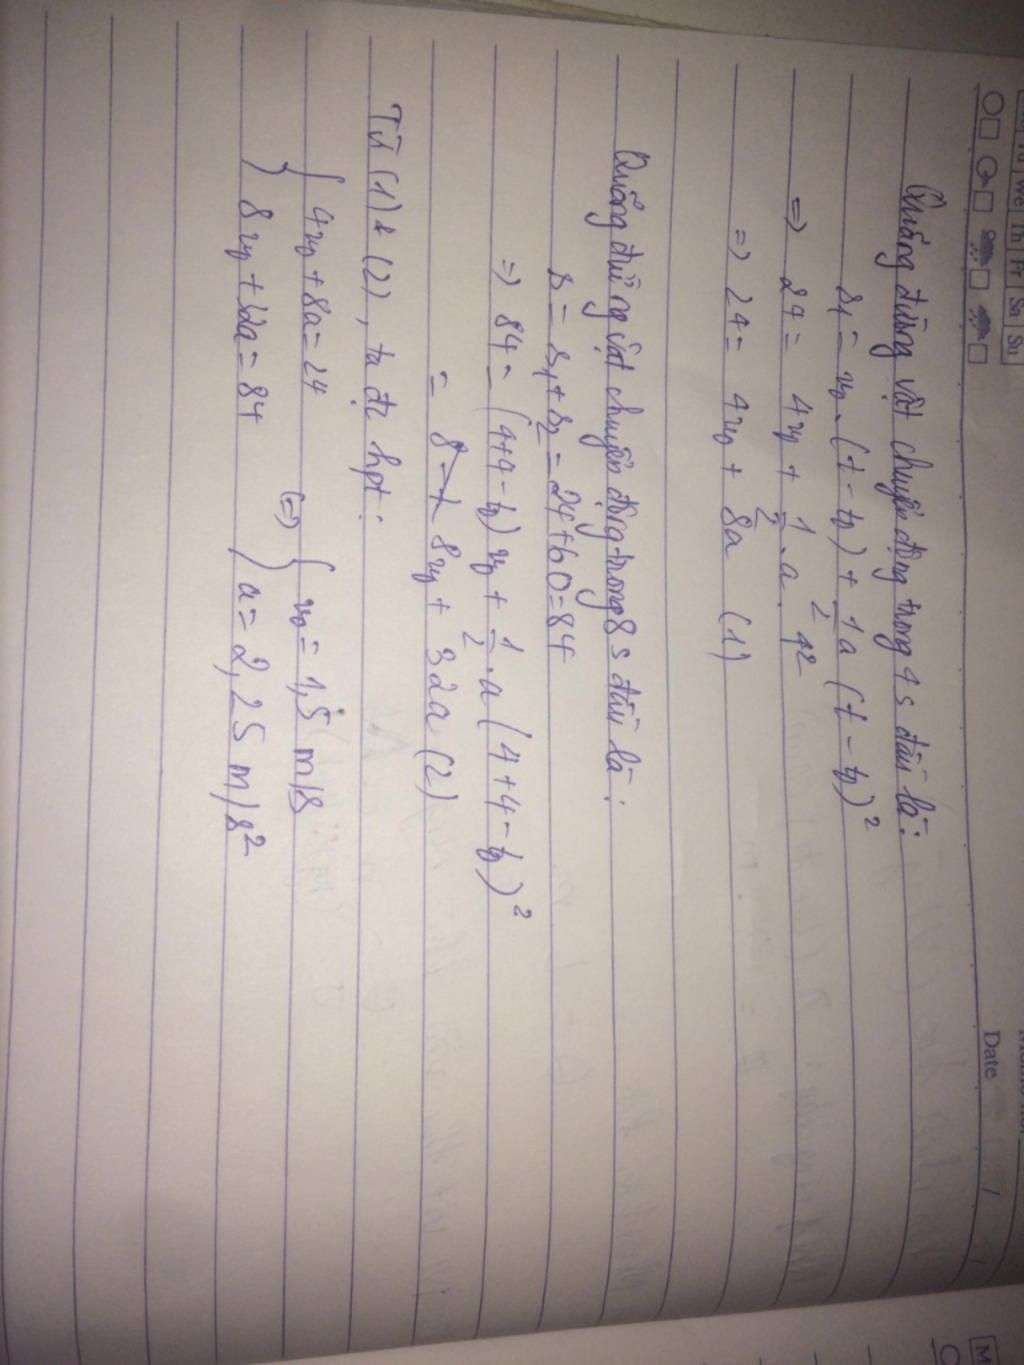 Tu We Th Fr Sa Su
Date
Quãng đường vật chuyển động trong 4 s đầu là:
s₁ = v₀.(t - t₀) + 1/2 a (t - t₀)²
=> 24 = 4v₀ + 1/2 . a . 4²
=> 24 = 4v₀ + 8a (1)
Quãng đường vật chuyển động trong 8 s đầu là:
s = s₁ + s₂ = 24 + 60 = 84
=> 84 = (4+4 - t₀) v₀ + 1/2 . a (4+4 - t₀)²
= 8v₀ + 32a (2)
Từ (1) & (2), ta đc hpt:
{ 4v₀ + 8a = 24 (=) { v₀ = 1,5 m/s
8v₀ + 32a = 84 a = 2,25 m/s²
M